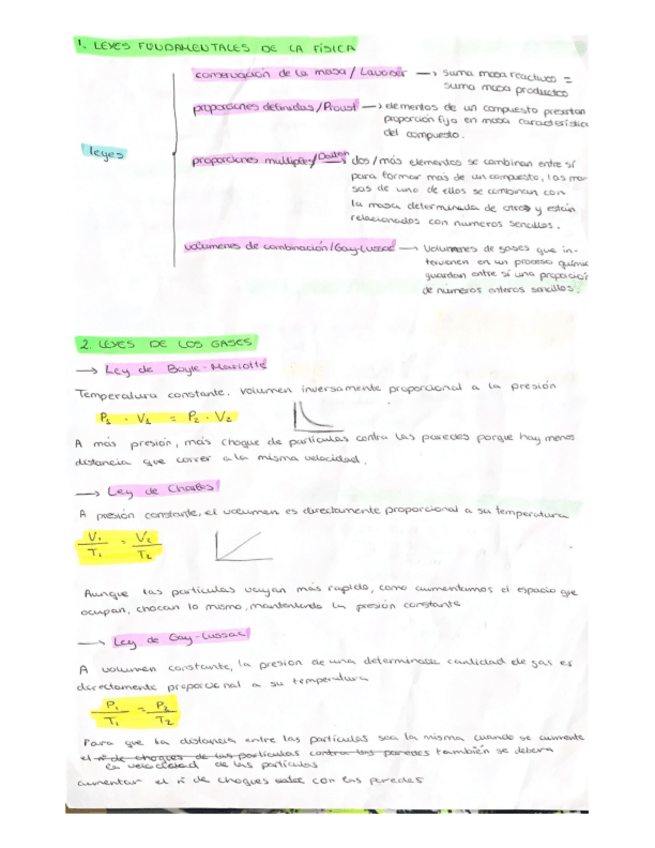 1. LEYES FUNDAMENTALES DE LA FÍSICA
conservación de la masa / Lavoisier → suma masa reactivos =
suma masa productos
proporciones definidas / Proust → elementos de un compuesto presentan
proporción fija en masa característica
del compuesto.
leyes
proporciones multiples / Dalton → dos / más elementos se combinan entre sí
para formar mas de un compuesto, las ma-
sas de uno de ellos se combinan con
la masa determinada de otros y están
relacionados con numeros sencillos.
volumenes de combinación / Gay-Lussac → Volumenes de gases que in-
tervienen en un proceso químic
guardan entre sí una proporción
de números enteros sencillos.
2. LEYES DE LOS GASES
→ Ley de Boyle-Mariotte
Temperatura constante. Volumen inversamente proporcional a la presión
P1 · V1 = P2 · V2
A más presión, más choque de partículas contra las paredes porque hay menos
distancia que correr a la misma velocidad.
→ Ley de Charles
A presión constante, el volumen es directamente proporcional a su temperatura
V1 / T1 = V2 / T2
Aunque las partículas vayan más rapido, como aumentamos el espacio que
ocupan, chocan lo mismo, manteniendo la presión constante
→ Ley de Gay-Lussac
A volumen constante, la presion de una determinada cantidad de gas es
directamente proporcional a su temperatura
P1 / T1 = P2 / T2
Para que la distancia entre las partículas sea la misma cuando se aumente
el nº de choques de las partículas contra las paredes también se debera
la velocidad de las partículas
aumentar el nº de choques con las paredes